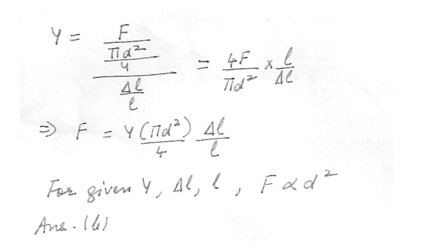 Y = F / (πd²/4) / (Δl/l) = 4F/πd² × l/Δl
⇒ F = Y (πd²)/4 Δl/l
For given Y, Δl, l, F ∝ d²
Ans. (b)